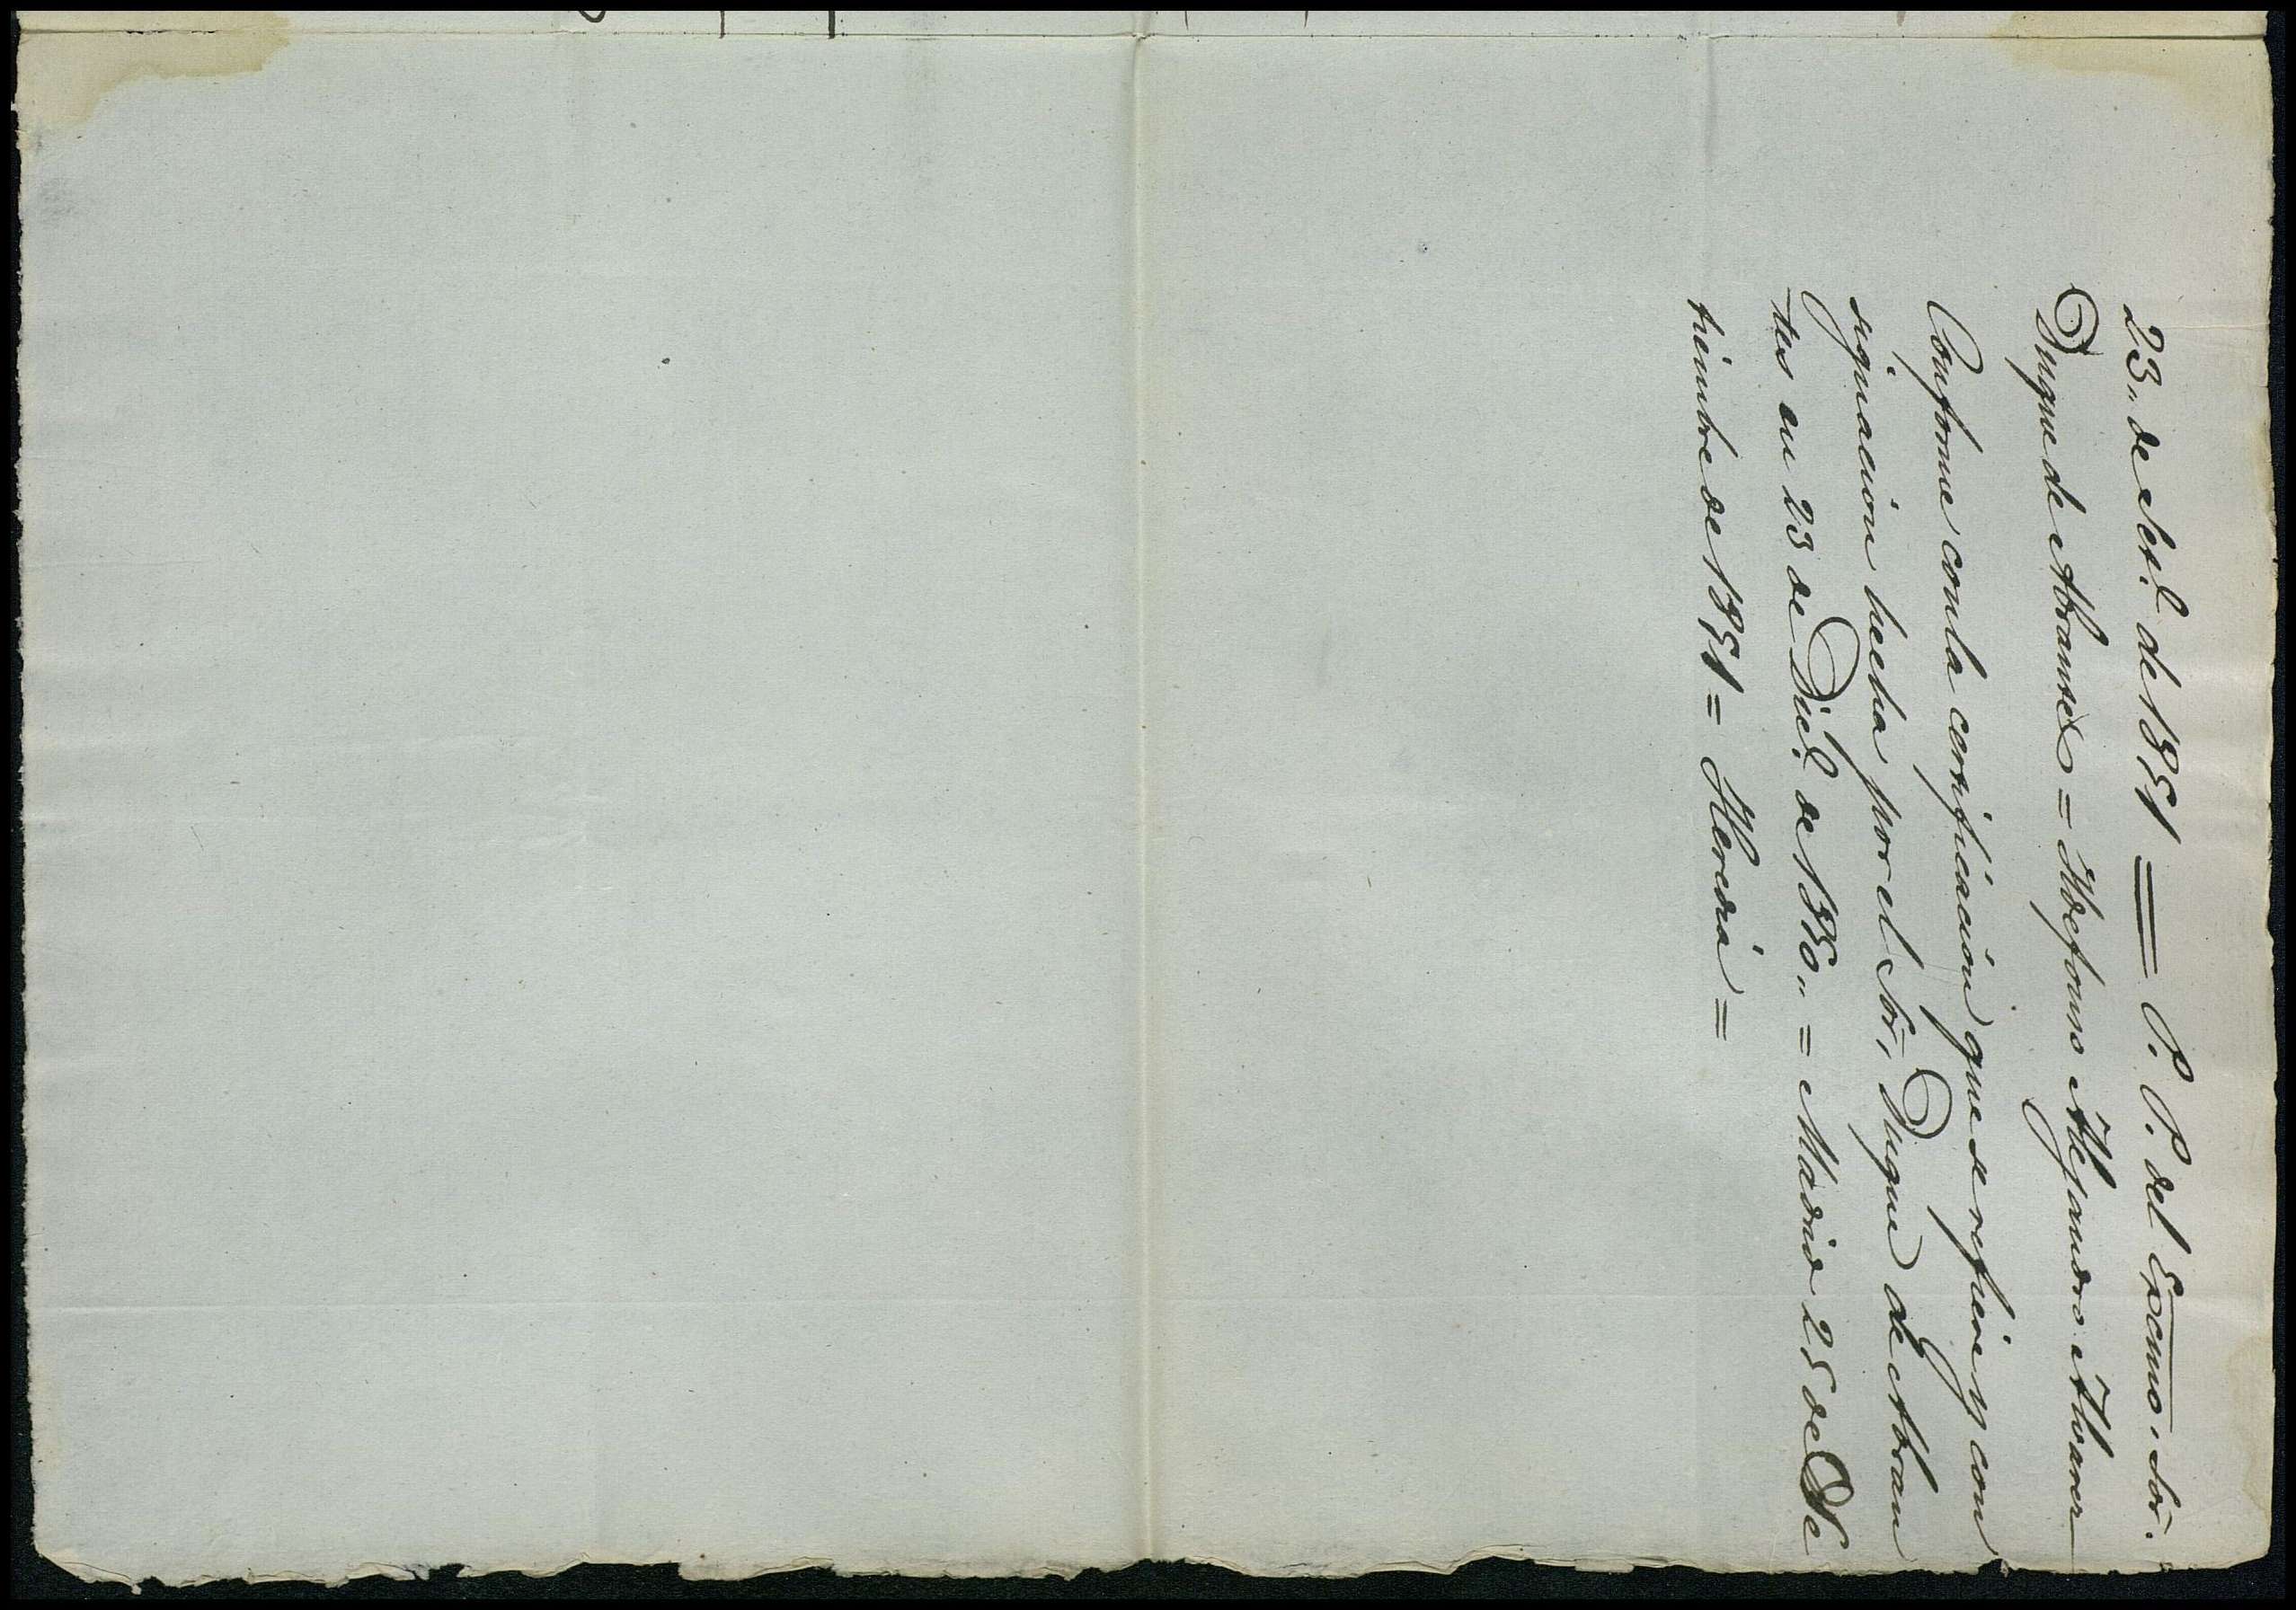 23,, de Set.e de 1851 == P. P. del Excmo. Sor.
Duque de Abrantes = Ildefonso Alejandro Alvarez
Conforme con la certificacion que se refiere y con
signacion hecha por el Sor, Duque de Abran
tes en 23 de Dic.e de 1850,, = Madrid 25 de Se
tiembre de 1851 = Heredia =